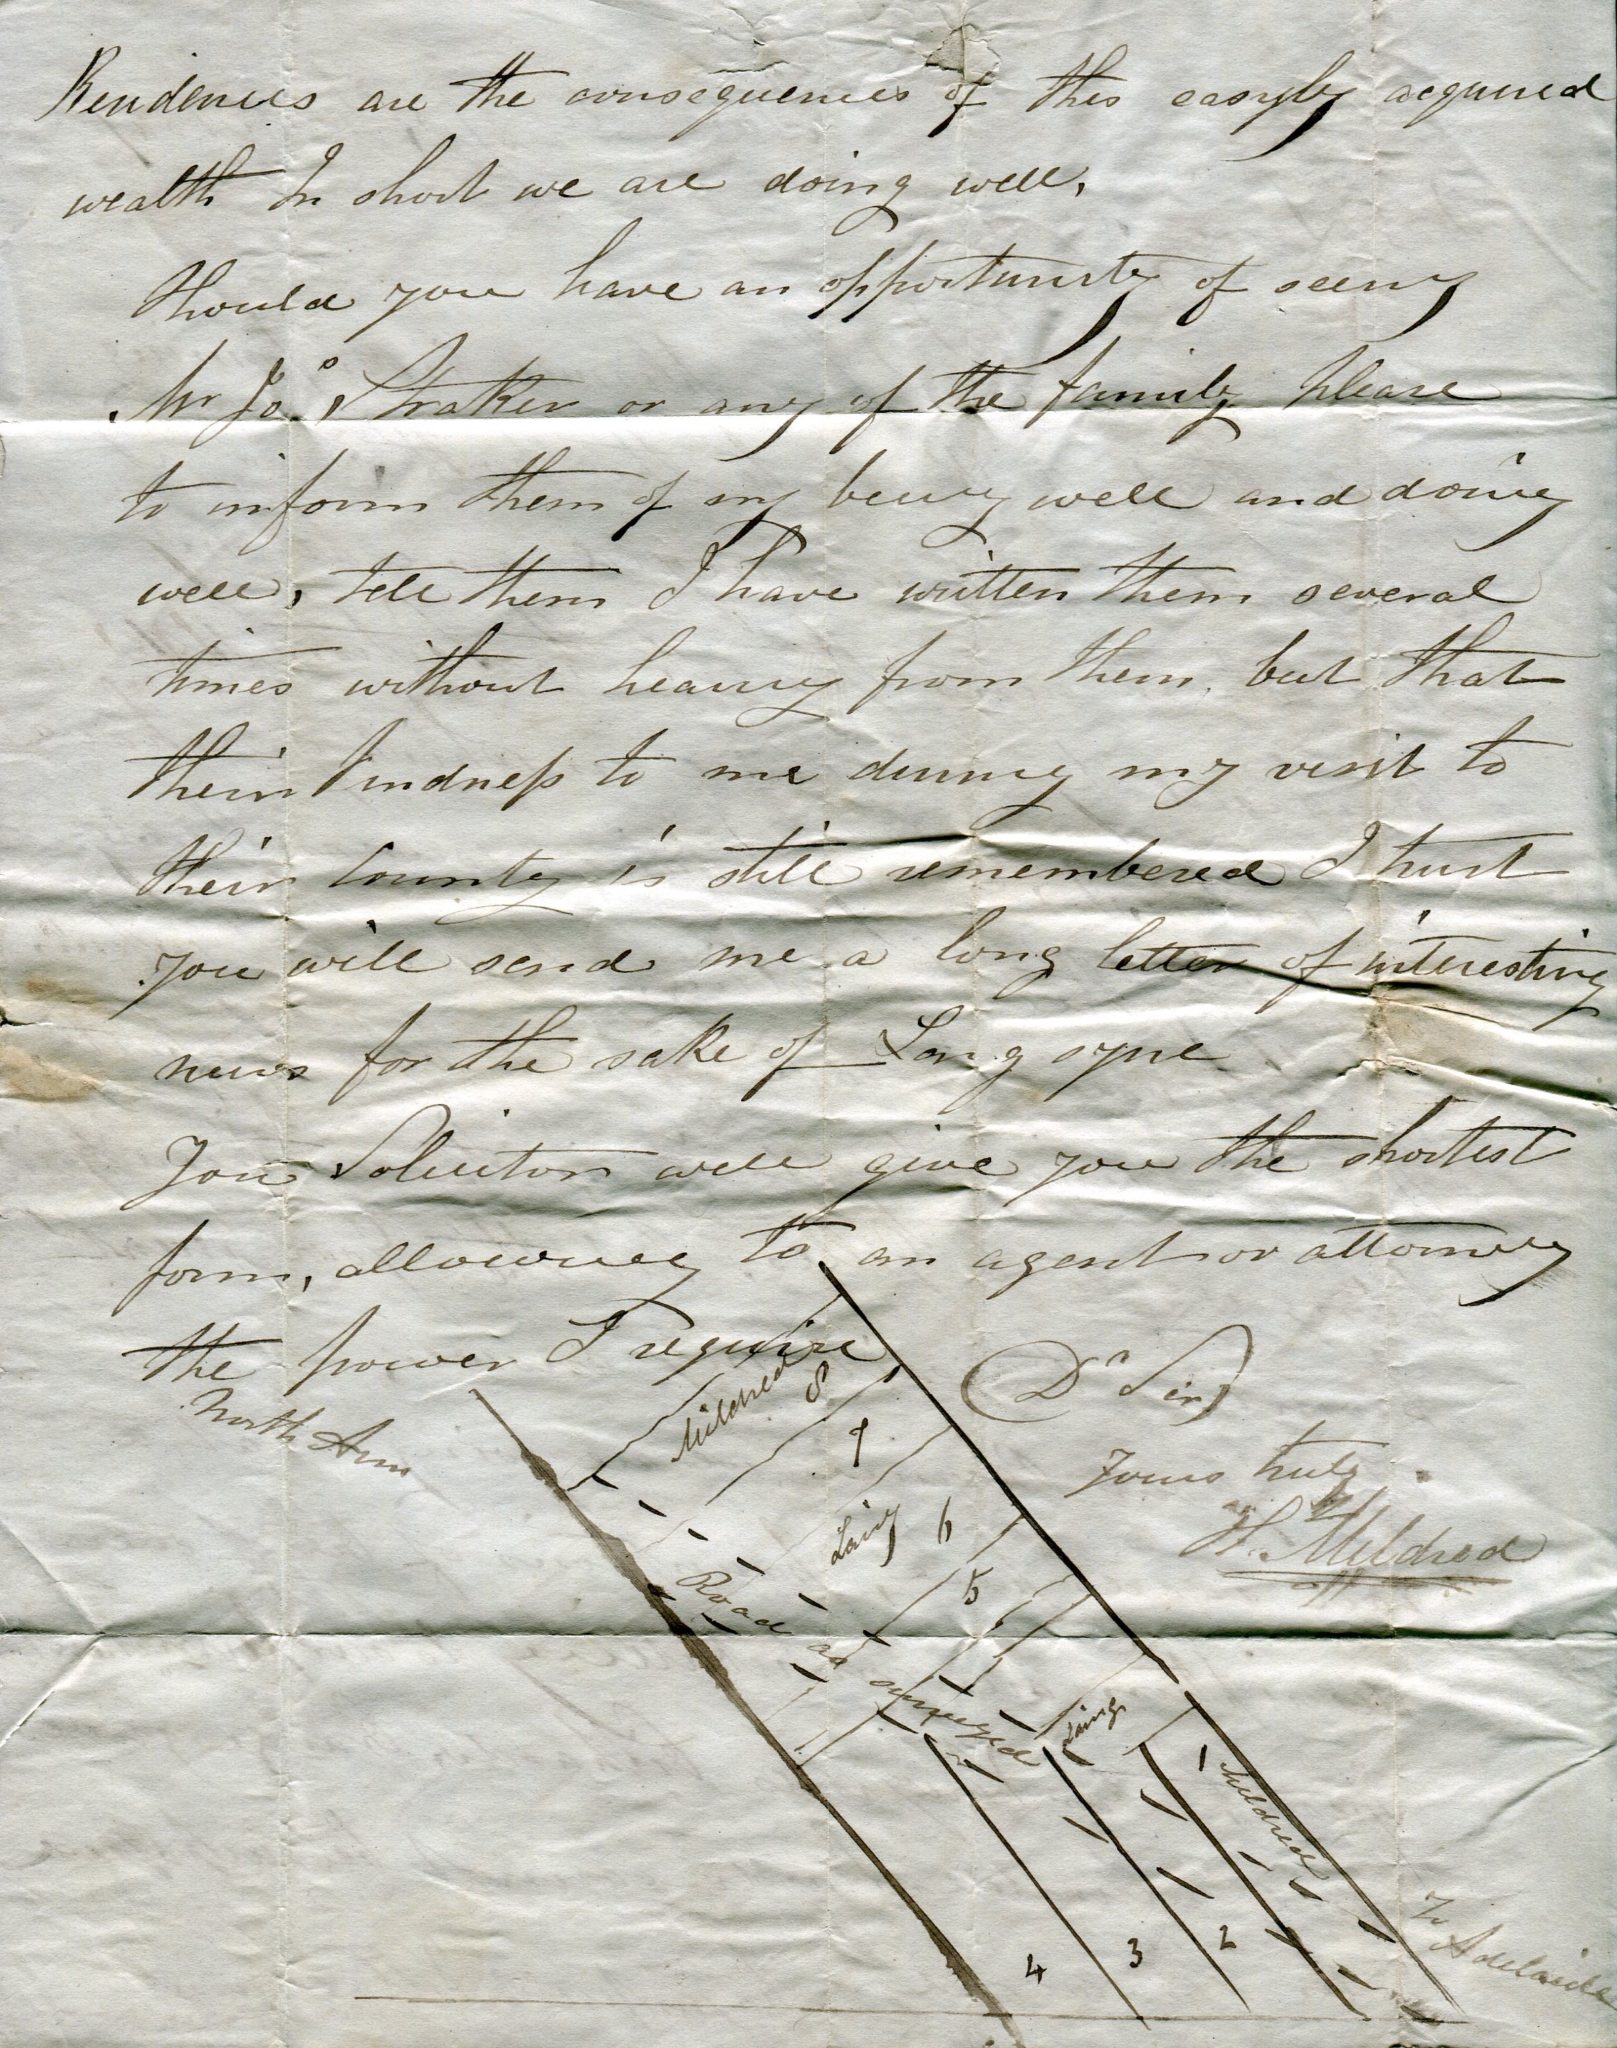 Residences are the consequences of this easyly acquired
wealth In short we are doing well,
Should you have an opportunity of seeing
Mr Jos Straker or any of the family please
to inform them of my being well and doing
well, tell them I have written them several
times without hearing from them, but that
their kindness to me during my visit to
their County is still remembered I trust
you will send me a long letter of interesting
news for the sake of Lang syne
Your Solicitor will give you the shortest
form, allowing to an agent or attorney
the power I require
Dr Sir
Yours truly
H. Mildred
North Arm
Mildred
8
7
Laing
6
5
Road as surveyed
Laing
Mildred
4
3
2
To Adelaide